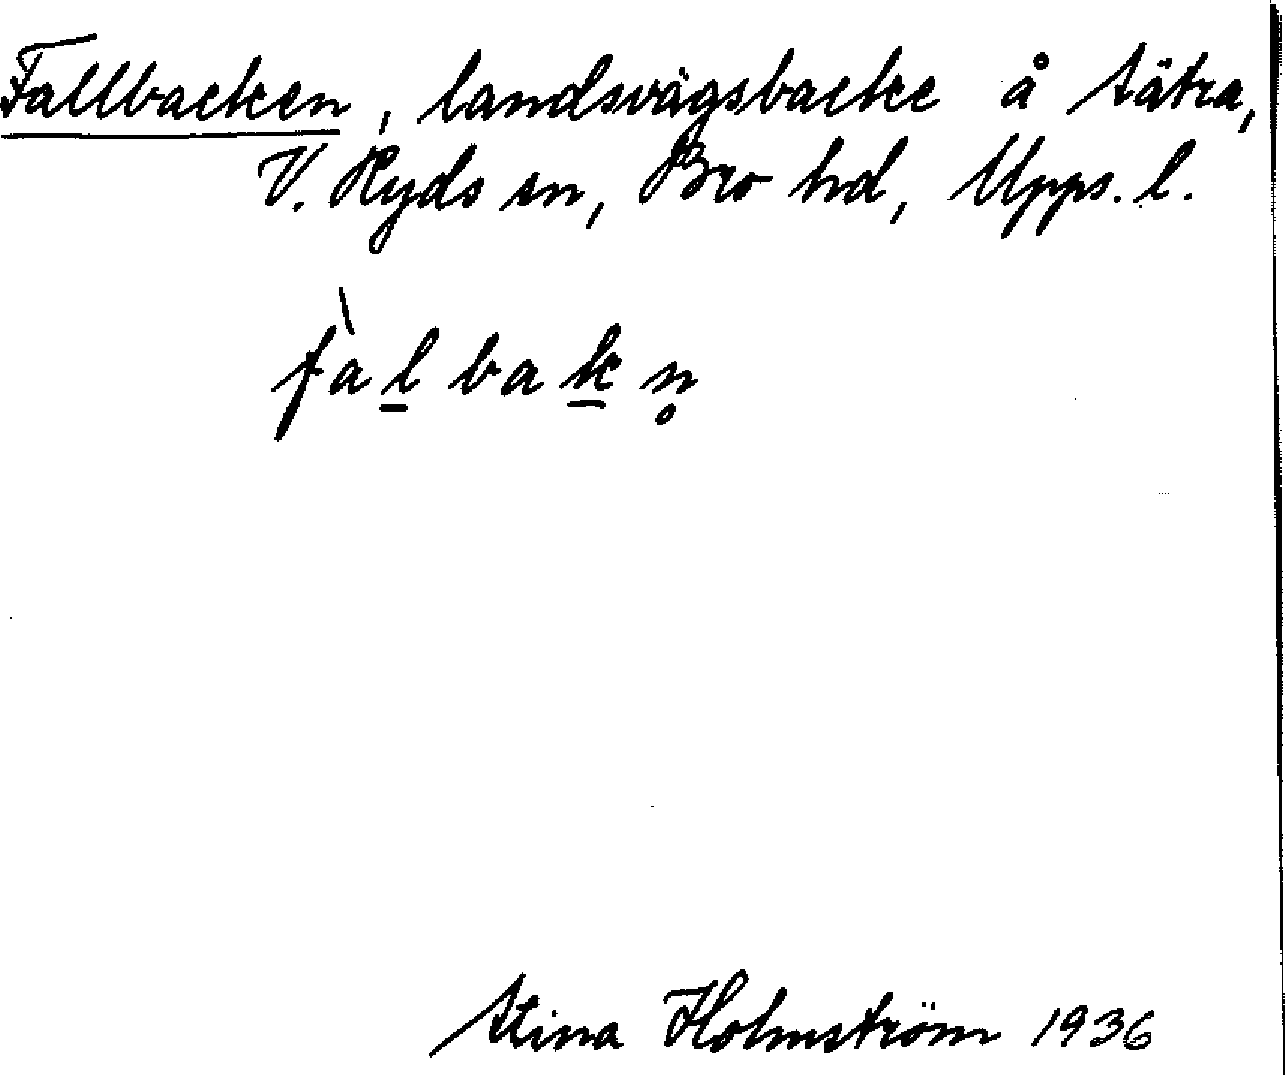 Fallbacken, landsvägsbacke å Sätra,
V. Ryds sn, Bro hd, Upps. l.
fàl̲bak̲n̥
Stina Holmström 1936